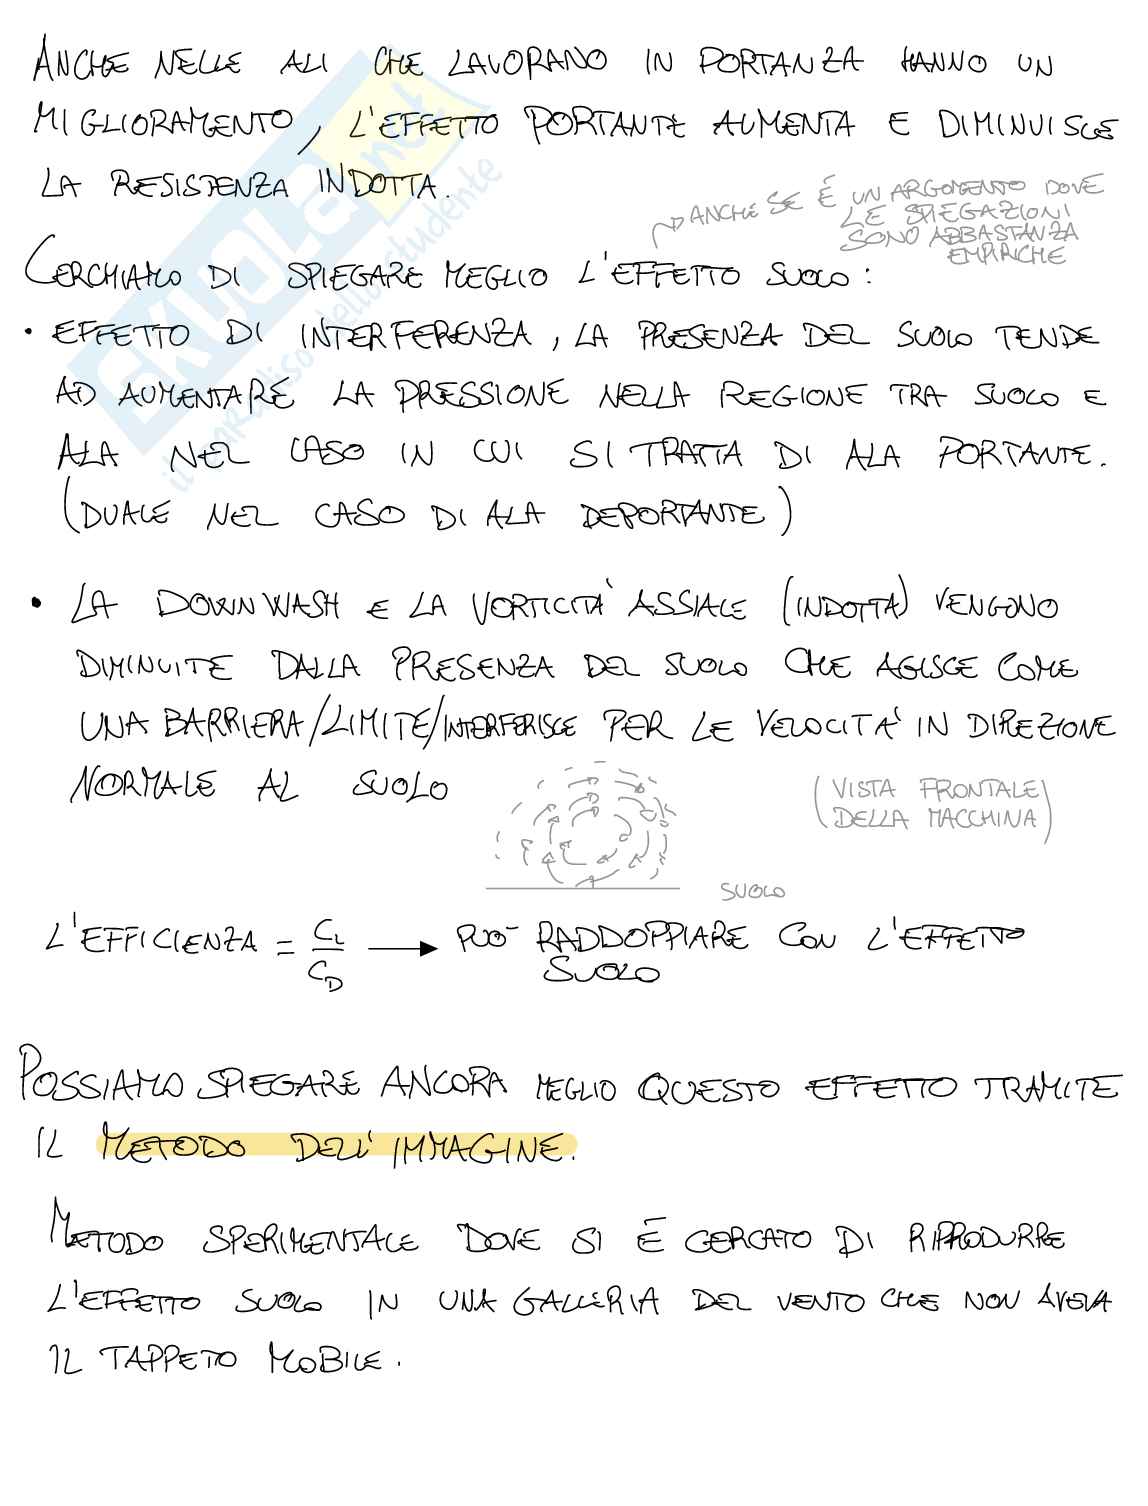 ANCHE NELLE ALI CHE LAVORANO IN PORTANZA HANNO UN
MIGLIORAMENTO, L'EFFETTO PORTANTE AUMENTA E DIMINUISCE
LA RESISTENZA INDOTTA.
ANCHE SE È UN ARGOMENTO DOVE
LE SPIEGAZIONI
SONO ABBASTANZA
EMPIRICHE
CERCHIAMO DI SPIEGARE MEGLIO L'EFFETTO SUOLO:
• EFFETTO DI INTERFERENZA, LA PRESENZA DEL SUOLO TENDE
AD AUMENTARE LA PRESSIONE NELLA REGIONE TRA SUOLO E
ALA NEL CASO IN CUI SI TRATTA DI ALA PORTANTE.
(DUALE NEL CASO DI ALA DEPORTANTE)
• LA DOWNWASH E LA VORTICITA' ASSIALE (INDOTTA) VENGONO
DIMINUITE DALLA PRESENZA DEL SUOLO CHE AGISCE COME
UNA BARRIERA/LIMITE/INTERFERISCE PER LE VELOCITA' IN DIREZIONE
NORMALE AL SUOLO
(VISTA FRONTALE
DELLA MACCHINA)
SUOLO
L'EFFICIENZA = CL/CD → PUO' RADDOPPIARE CON L'EFFETTO
SUOLO
POSSIAMO SPIEGARE ANCORA MEGLIO QUESTO EFFETTO TRAMITE
IL METODO DELL'IMMAGINE.
METODO SPERIMENTALE DOVE SI È CERCATO DI RIPRODURRE
L'EFFETTO SUOLO IN UNA GALLERIA DEL VENTO CHE NON AVEVA
IL TAPPETO MOBILE.
SKUOLA.net
il paradiso dello studente